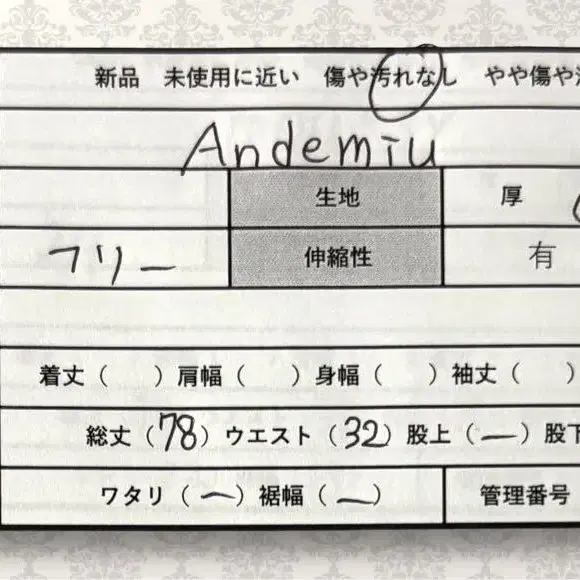 新品 未使用に近い 傷や汚れなし やや傷や汚
Andemiu
生地 厚
フリー 伸縮性 有
着丈( )肩幅( )身幅( )袖丈( )
総丈(78)ウエスト(32)股上(ー)股下
ワタリ(ー)裾幅(ー) 管理番号